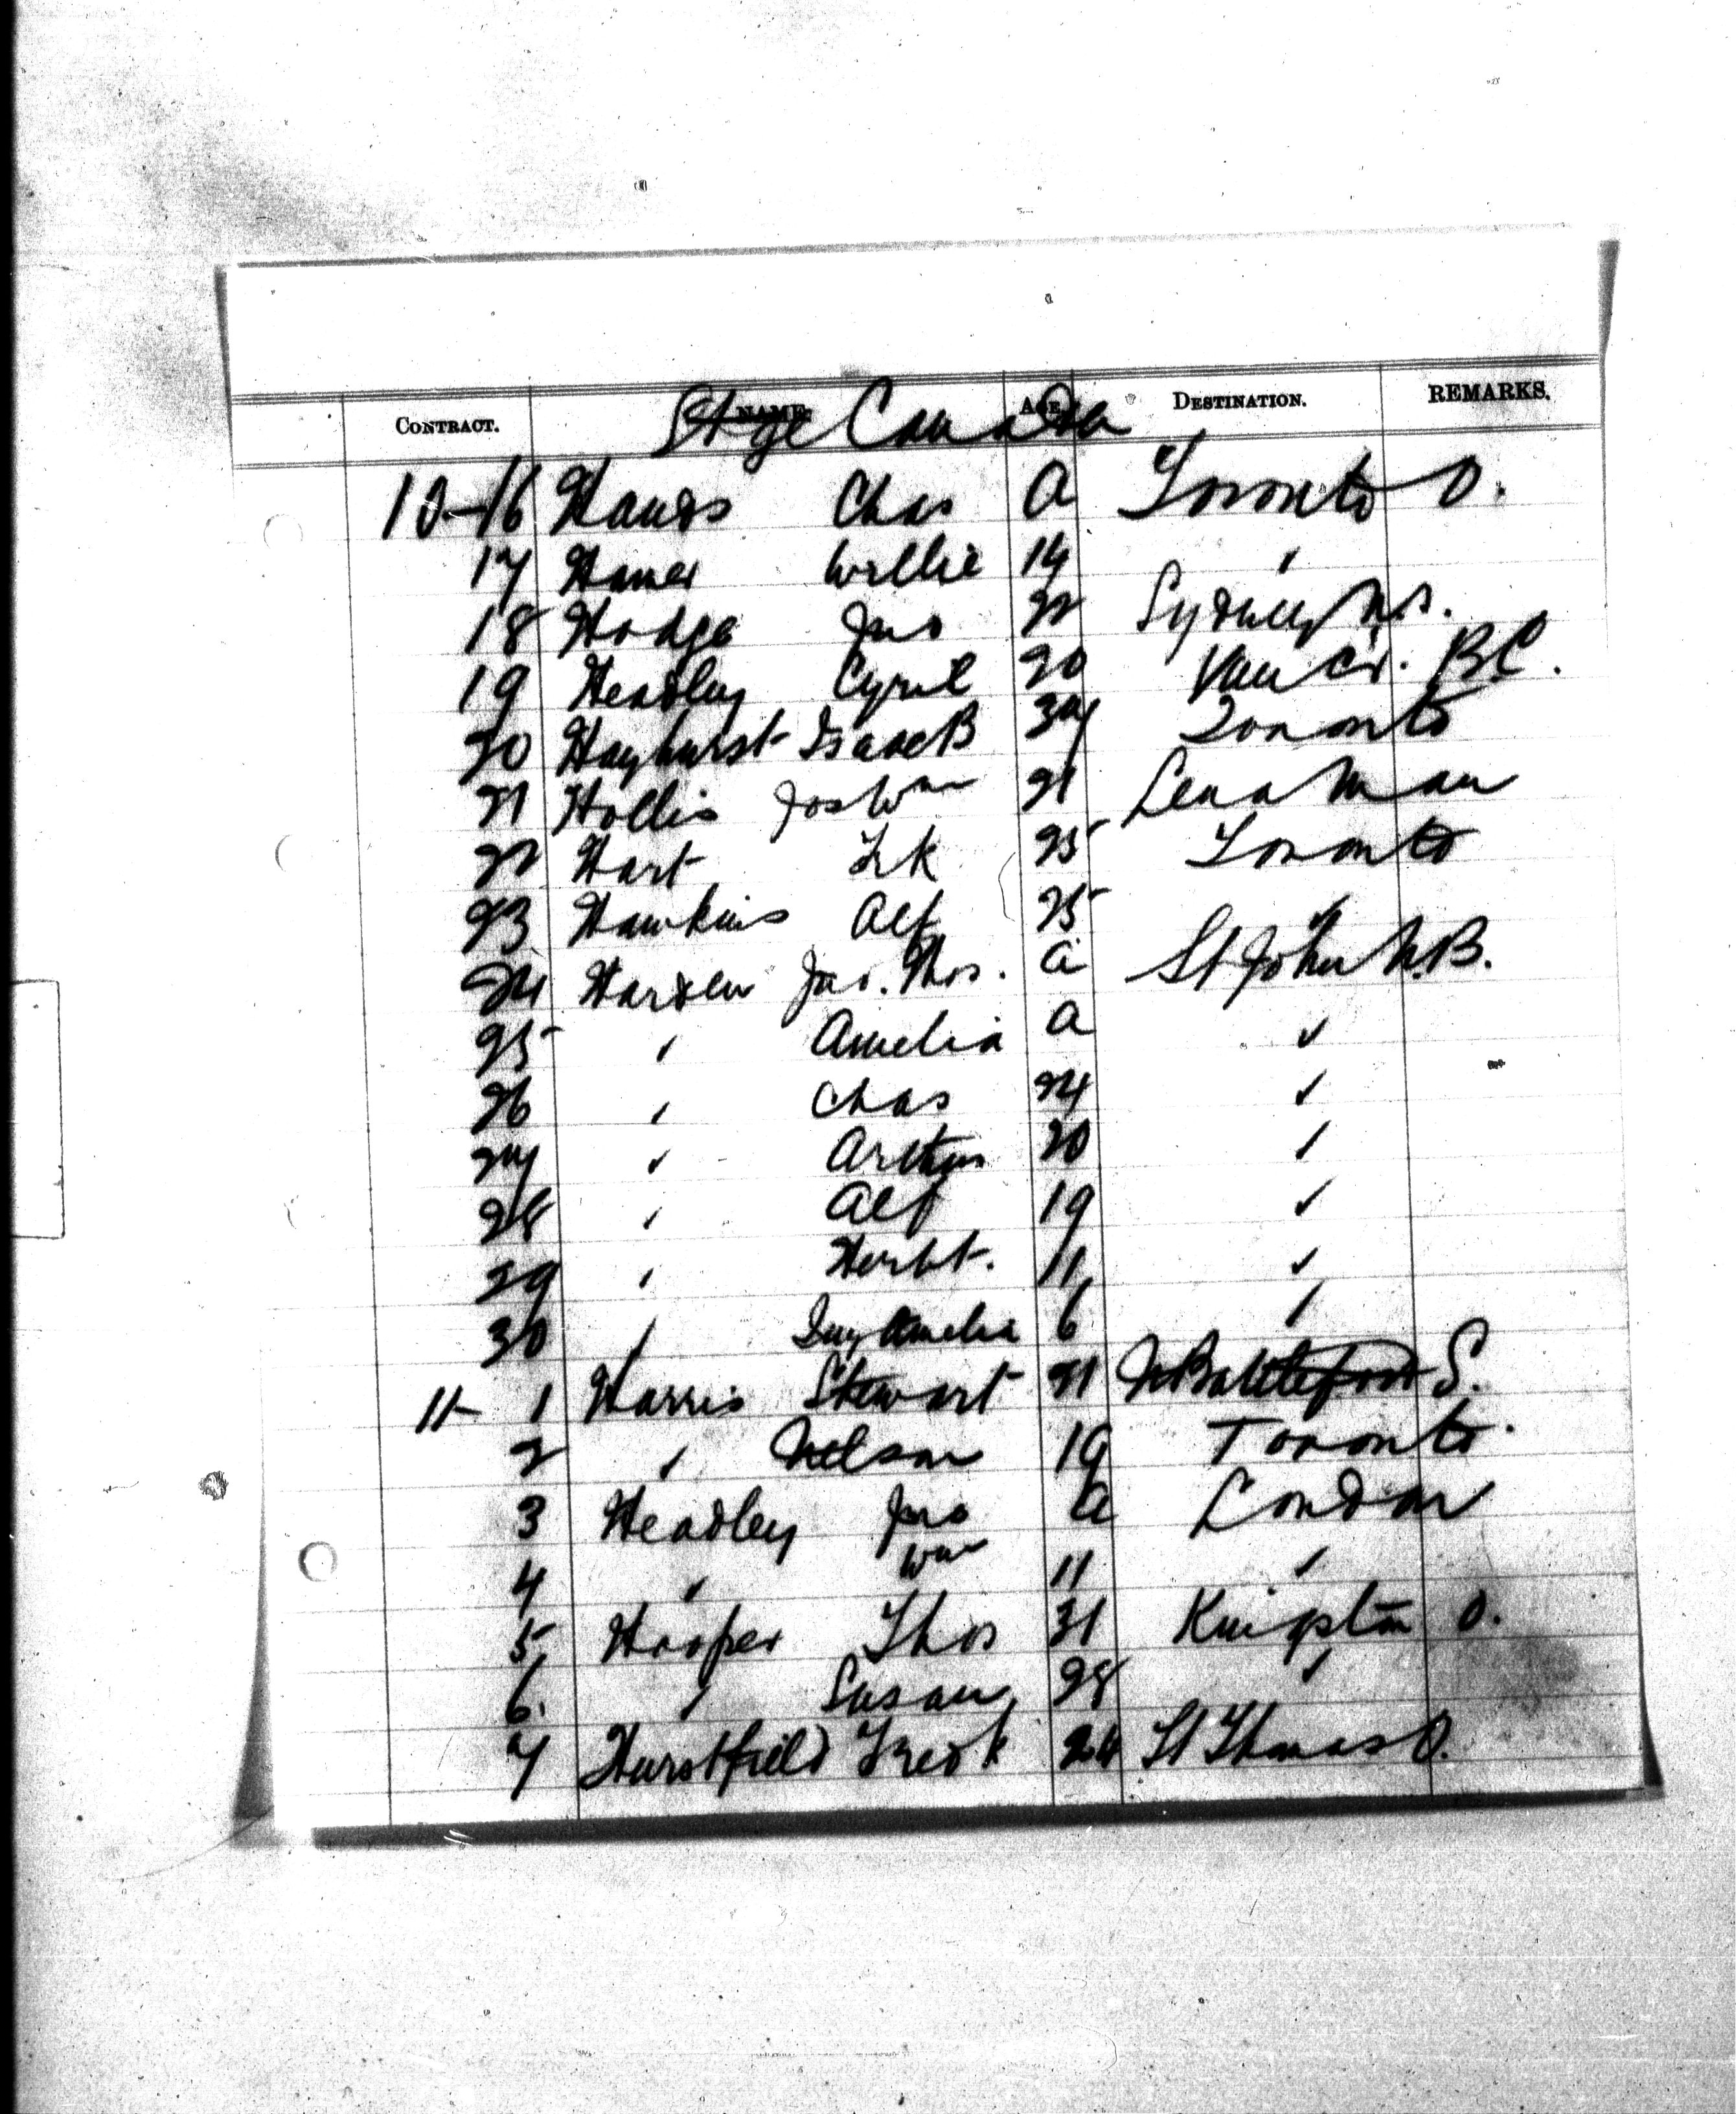 CONTRACT. NAME. AGE. DESTINATION. REMARKS.
Stge Canada
10-16 Hands Chas A Toronto O.
17 Hamer Willie 14 "
18 Hodge Jno 22 Sydney N.S.
19 Headley Cyril 20 Van Cr. B.C.
20 Hayhurst Isaac B 37 Toronto
21 Hollis Jos Wm 21 Lena Man
22 Hart Fk 25 Toronto
23 Hawkins Alf 25 "
24 Harden Jno. Thos. A St John N.B.
25 " Amelia A "
26 " Chas 24 "
27 " Arthur 20 "
28 " Alf 19 "
29 " Herbt. 11 "
30 " Amelia 6 "
11- 1 Harris Stewart 21 N Battleford S.
2 " Nelson 19 Toronto.
3 Headley Jno A London
4 " Wm 11 "
5 Hooper Thos 31 Kingston O.
6. " Susan 28 "
7 Hurstfield Fredk 24 St Thomas O.